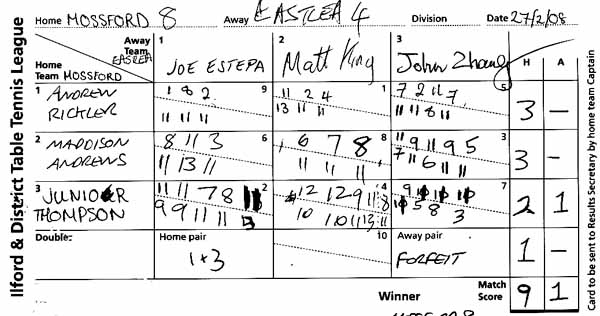 Ilford & District Table Tennis League
Home MOSSFORD 8 Away EASTLEA 4 Division Date 27/2/08
Away Team EASTLEA
Home Team MOSSFORD
1 JOE ESTEPA
2 Matt King
3 John Zhang
H A
1 ANDREW RICKLER
1 8 2 9
11 11 11
11 2 4 1
13 11 11
7 2 11 7 5
11 11 8 11
3 –
2 MADDISON ANDREWS
8 11 3 6
11 13 11
6 7 8 8
11 11 11
11 9 11 9 5 3
7 11 6 11 11
3 –
3 JUNIOR THOMPSON
11 11 7 8 2
9 9 11 11
12 12 9 11 8 4
10 10 11 13 11
7
5 8 3
2 1
Double: Home pair 10 Away pair
1+3 FORFEIT
1 –
Winner Match Score 9 1
Card to be sent to Results Secretary by home team Captain